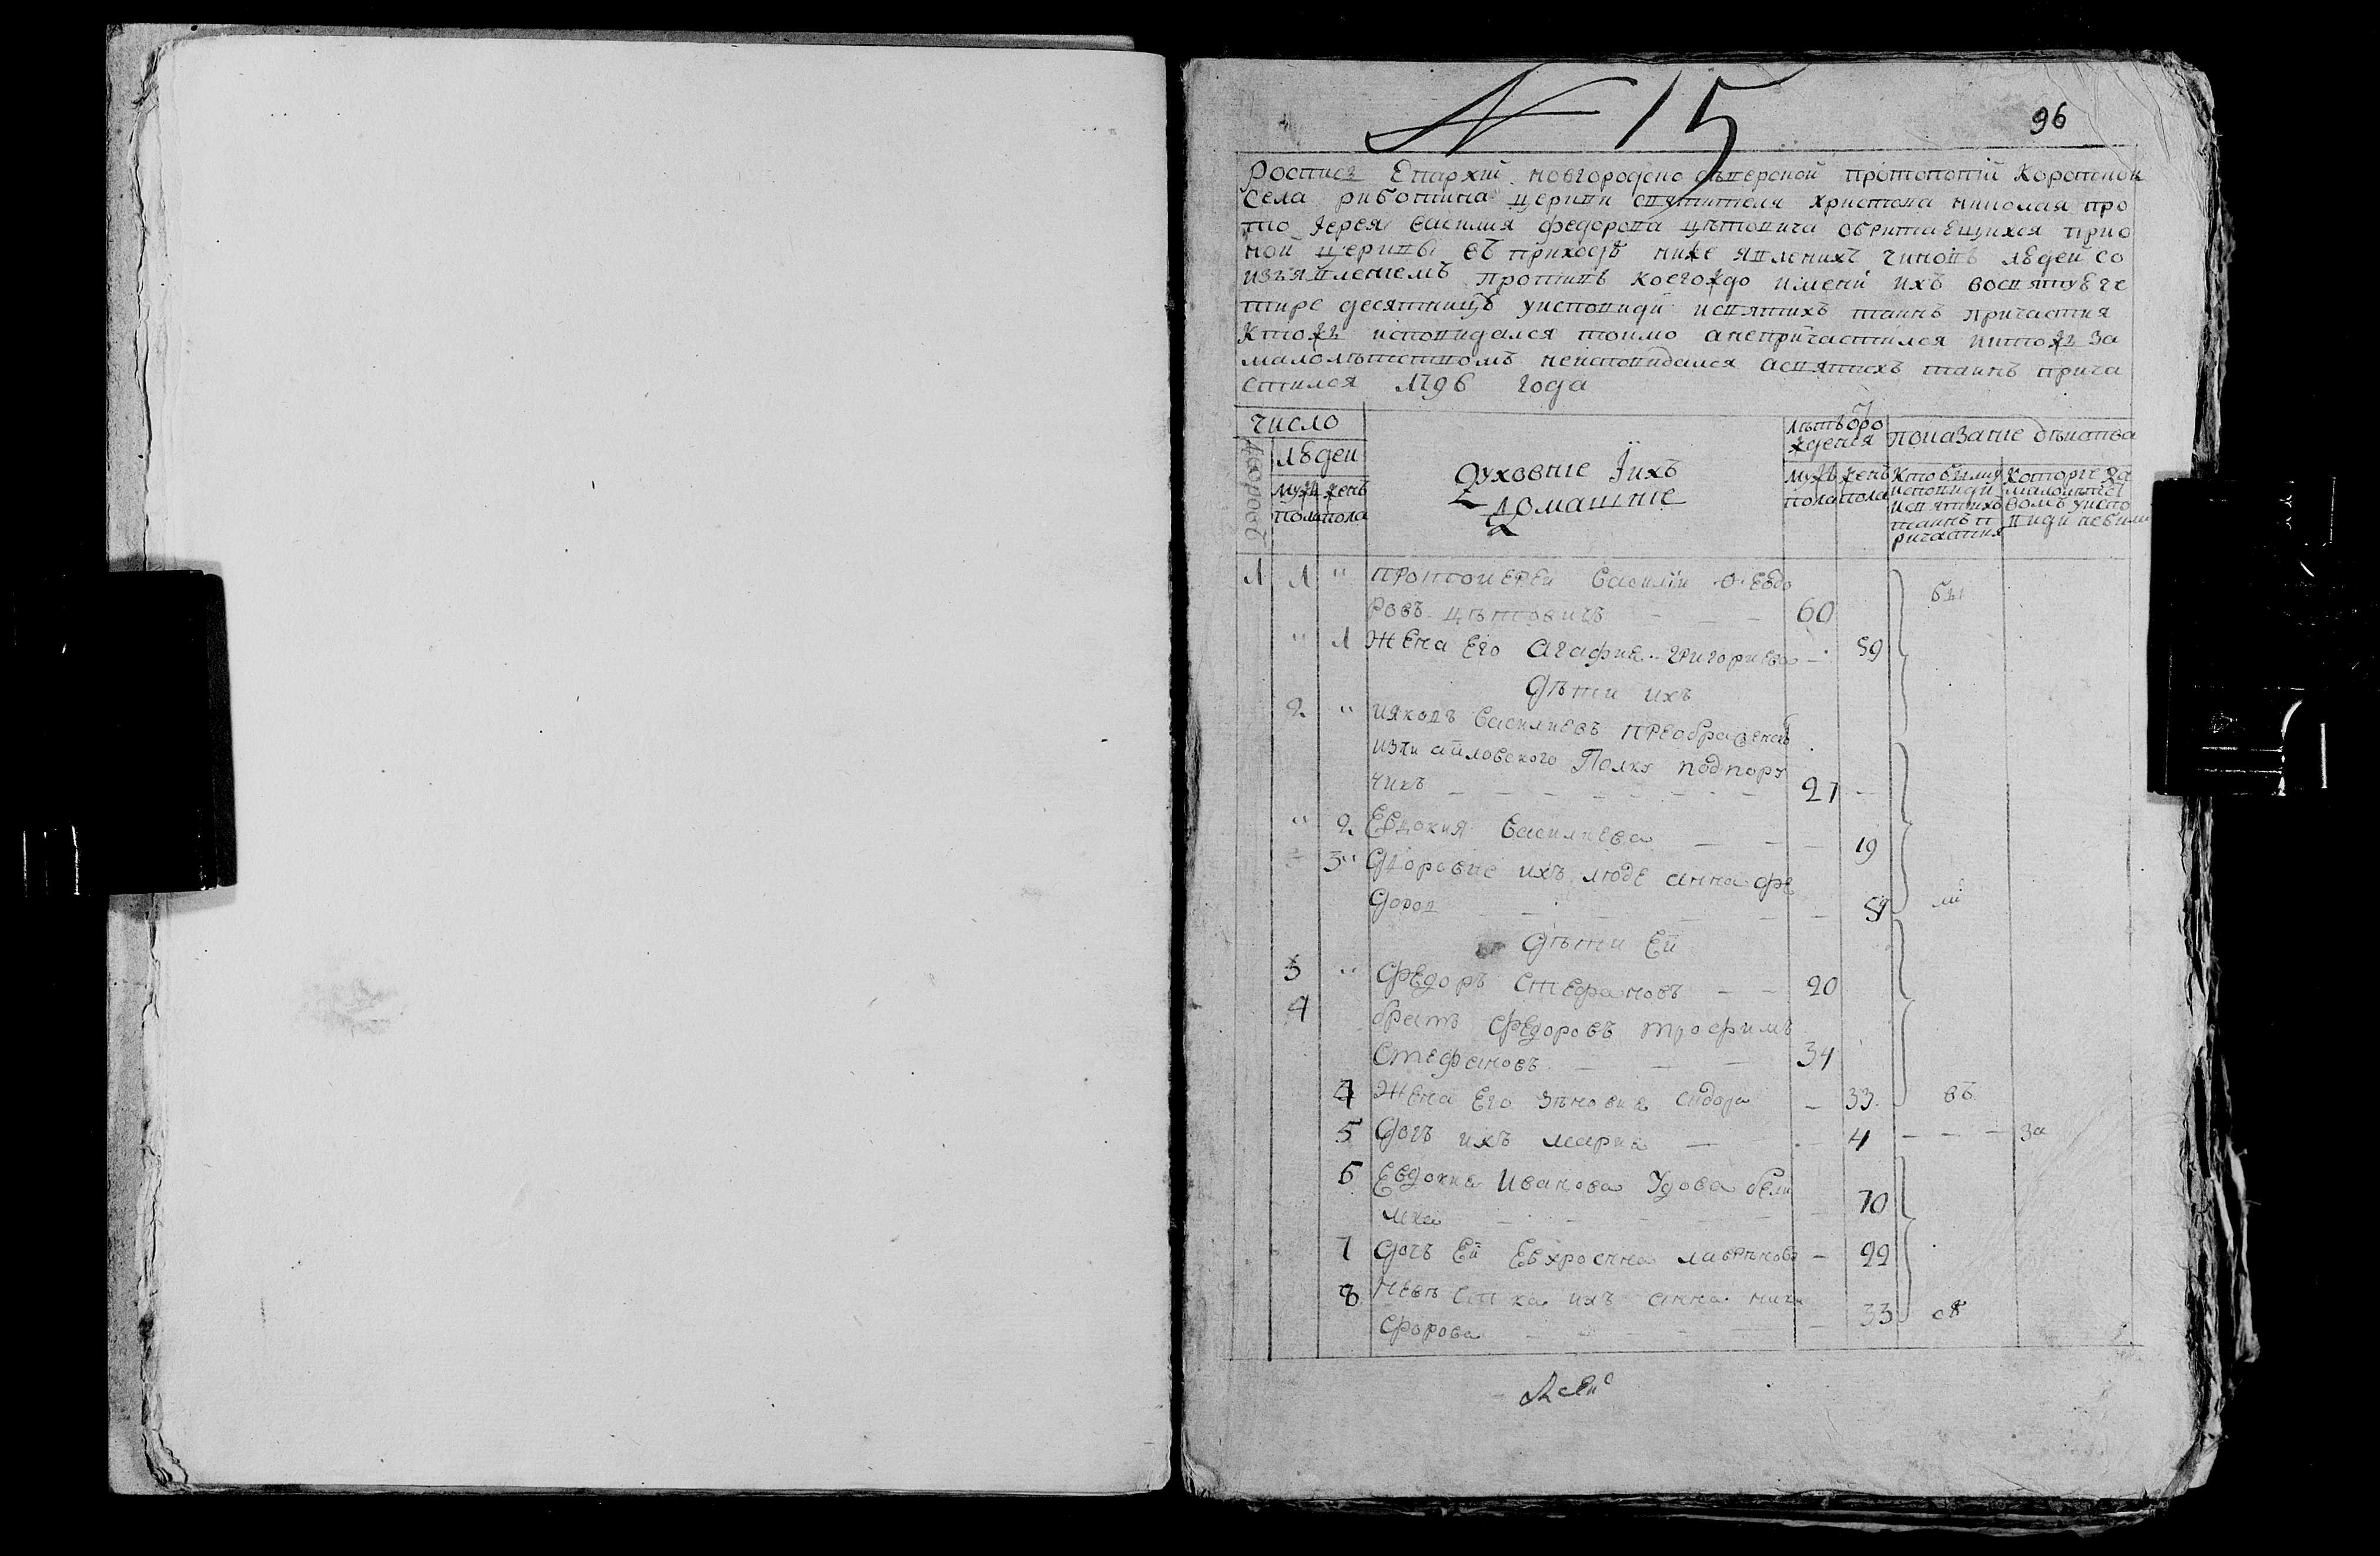 N 15
96
Росписъ Епархіи новгородско сѣверской протопопіи Коропской
Села риботина церкви святителя христова николая про
то Іерея василия федорова цѣтовича обритаещихся при о
ной церкви въ приходѣ ниже явлених чиновъ людей со
изъявлениемъ противъ коегождо имени ихъ во святую че
тире десятницу у исповиди и святихъ таинъ причастия
Ктожъ исповидался токмо а непричастился и ктожъ за
малолѣтствомъ неисповидался а святихъ таинъ прича
стился 1796 года
число
людей
дворовъ
мужъ женъ
пола пола
Духовние Іихъ
Домашніе
лѣтъ оро
жденія
мужъ женъ
пола пола
показаніе дѣйства
Кто былъ у
исповиди
и святихъ
таинъ п
ричастия
Которіе за
малолѣтст
вомъ у испо
види небили
1 1 " протоиерей Василій Феодо
ровъ цѣтовичъ — — — 60 бы
" 1 Жена Его Агафия григориева — 59
Дѣти ихъ
2 " Иаковъ Василиевъ преображенс
измайловского Полку подпору
чикъ — — — — — — — 27 —
" 2 Евдокия Василиева — — — 19
3 " Дворовие ихъ люде анна фе
доров — — — — — 59 ли
Дѣти Ей
3 " Федоръ Стефановъ — — 20
4 братъ Федоровъ трофимъ
Стефановъ — — — 34
4 Жена Его зѣновия сидора — 33 въ
5 Дочъ ихъ мария — — 4 — — — за
6 Евдокия Иванова Удова
— — — — — — 70
7 Дочъ Ей Евхросина лаврѣнова — 22
8 Невѣстка ихъ анна ники
форова — — — — — — 33 св